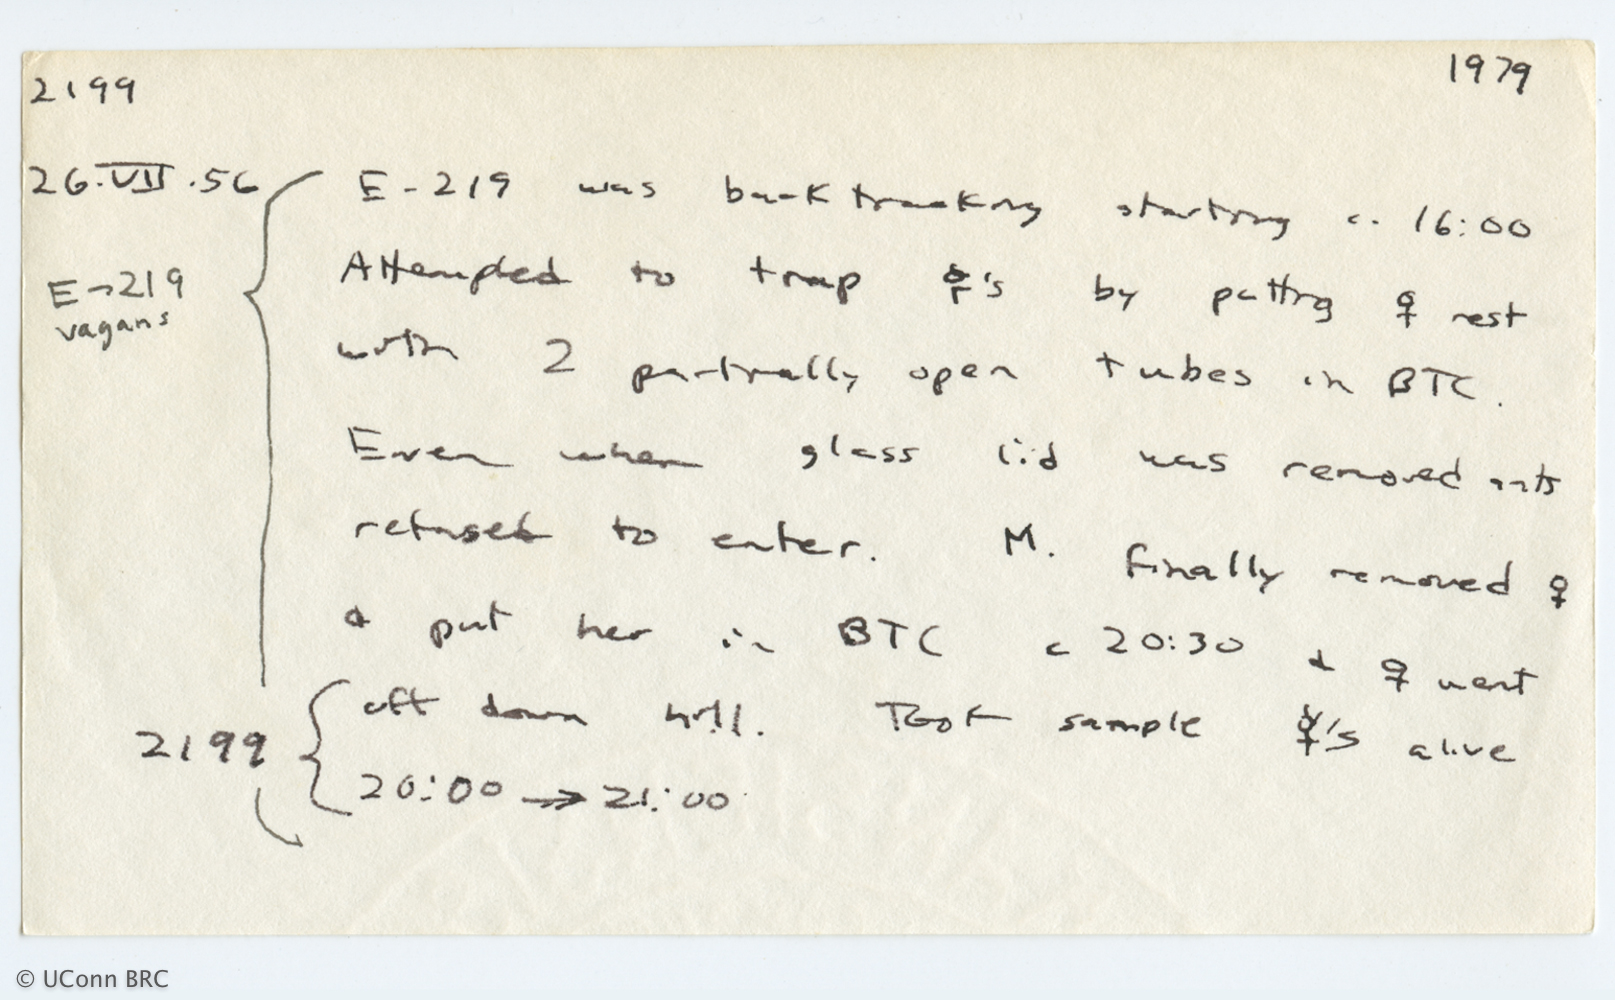 2199
1979
26.VII.56
E-219 was backtracking starting c. 16:00
E-219
vagans
Attempted to trap ☿'s by putting ♀ rest
with 2 partially open tubes in BTC.
Even when glass lid was removed ants
refused to enter. M. finally removed ♀
& put her in BTC c 20:30 & ♀ went
off down hill. Took sample ☿'s alive
2199
20:00 → 21:00
© UConn BRC